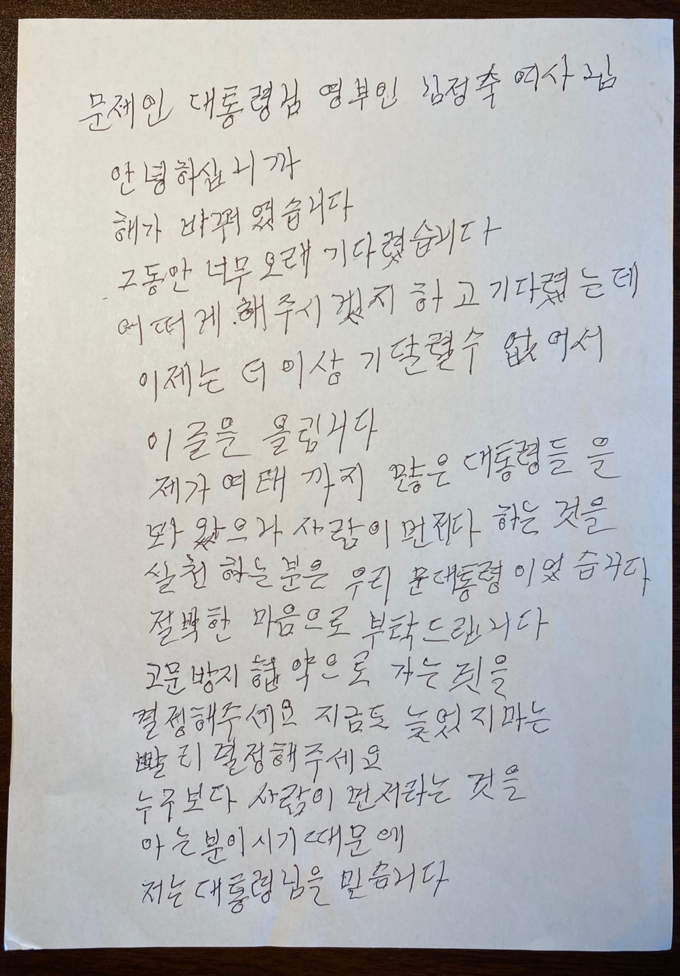 문제인 대통령님 영부인 김정축 여사님
안녕하십니까
해가 바꿔 였습니다
그동안 너무 오래 기다렸습니다
어떠게 해주시겠지 하고 기다렸는데
이제는 더 이상 기달렬수 없어서
이 글을 올립니다
제가 여태 까지 많은 대통령들 을
봐 왔으나 사람이 먼저다 하는 것을
실천 하는 분은 우리 문대통령 이었 습니다
절박한 마음으로 부탁드립니다
고문방지 협약으로 가는 것을
결정해주세요 지금도 늦었지마는
빨리 결정해주세요
누구보다 사람이 먼저라는 것을
아는 분이시기 때문에
저는 대통령님을 믿습니다